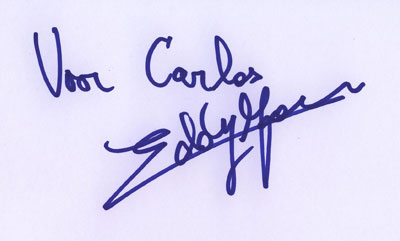 Voor Carlos
Eddy